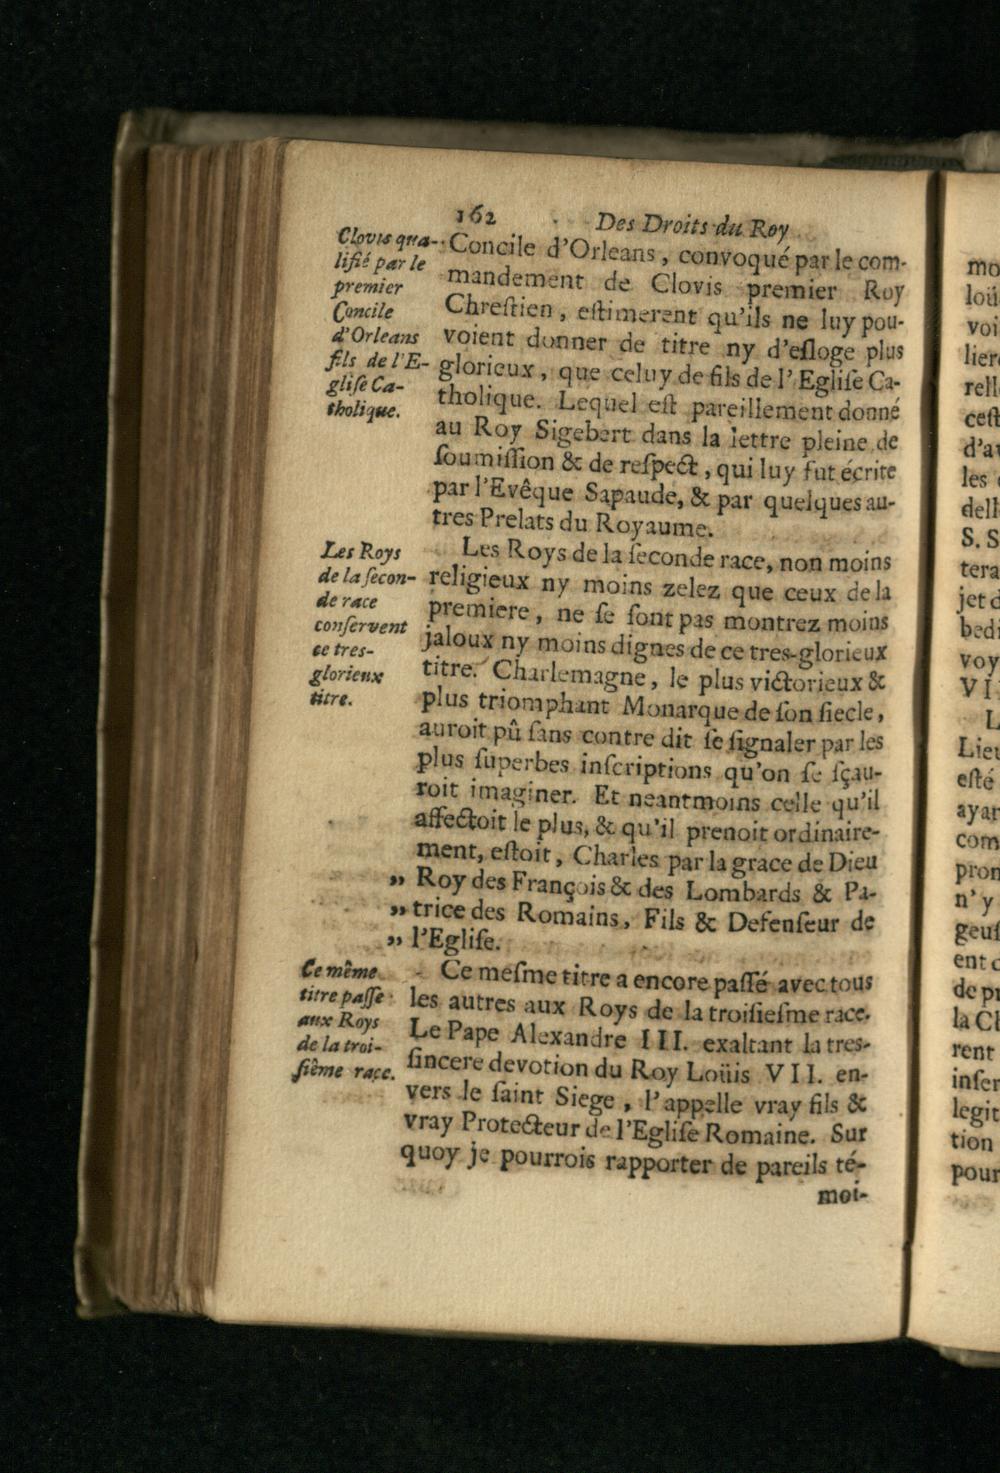 162 Des Droits du Roy
Clovis qua-
lifié par le
premier
Concile
d'Orleans
fils de l'E-
gliſe Ca-
tholique.
Concile d'Orleans, convoqué par le com-
mandement de Clovis premier Roy
Chreſtien, eſtimerent qu'ils ne luy pou-
voient donner de titre ny d'eſloge plus
glorieux, que celuy de fils de l'Egliſe Ca-
tholique. Lequel eſt pareillement donné
au Roy Sigebert dans la lettre pleine de
ſoumiſſion & de reſpect, qui luy fut écrite
par l'Evêque Sapaude, & par quelques au-
tres Prelats du Royaume.
Les Roys
de la ſecon-
de race
conſervent
ce tres-
glorieux
titre.
Les Roys de la ſeconde race, non moins
religieux ny moins zelez que ceux de la
premiere, ne ſe ſont pas montrez moins
jaloux ny moins dignes de ce tres-glorieux
titre. Charlemagne, le plus victorieux &
plus triomphant Monarque de ſon ſiecle,
auroit pû ſans contre dit ſe ſignaler par les
plus ſuperbes inſcriptions qu'on ſe ſçau-
roit imaginer. Et neantmoins celle qu'il
affectoit le plus, & qu'il prenoit ordinaire-
ment, eſtoit, Charles par la grace de Dieu
„ Roy des François & des Lombards & Pa-
„ trice des Romains, Fils & Defenſeur de
„ l'Egliſe.
Ce même
titre paſſe
aux Roys
de la troi-
ſiême race.
Ce meſme titre a encore paſſé avec tous
les autres aux Roys de la troiſieſme race.
Le Pape Alexandre III. exaltant la tres-
ſincere devotion du Roy Loüis VII. en-
vers le ſaint Siege, l'appelle vray fils &
vray Protecteur de l'Egliſe Romaine. Sur
quoy je pourrois rapporter de pareils té-
moi-
mo
loü
voi
lier
rell
ceſt
d'a
les
dell
S. S
tera
jet d
bedi
voy
VI
L
Lieu
eſté
ayar
com
pron
n'y
geuſ
ent
de p
la Cl
rent
inſer
legit
tion
pour